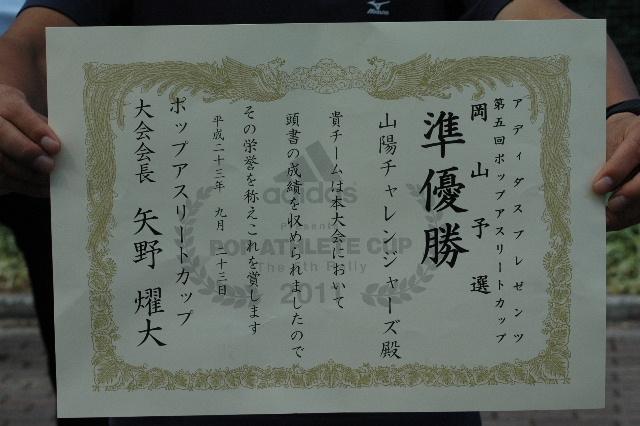 アディダスプレゼンツ
第五回ポップアスリートカップ
岡山予選
準優勝
山陽チャレンジャーズ殿
貴チームは本大会において
頭書の成績を収められましたので
その栄誉を称えこれを賞します
平成二十三年 九月 二十三日
ポップアスリートカップ
大会会長 矢野 燿大
adidas
Presents
POP ATHLETE CUP
The 5th Rally
2011
MIZUNO